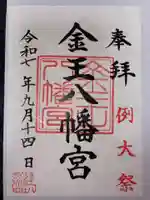 奉拝
例大祭
金王八幡宮
令和七年九月十四日